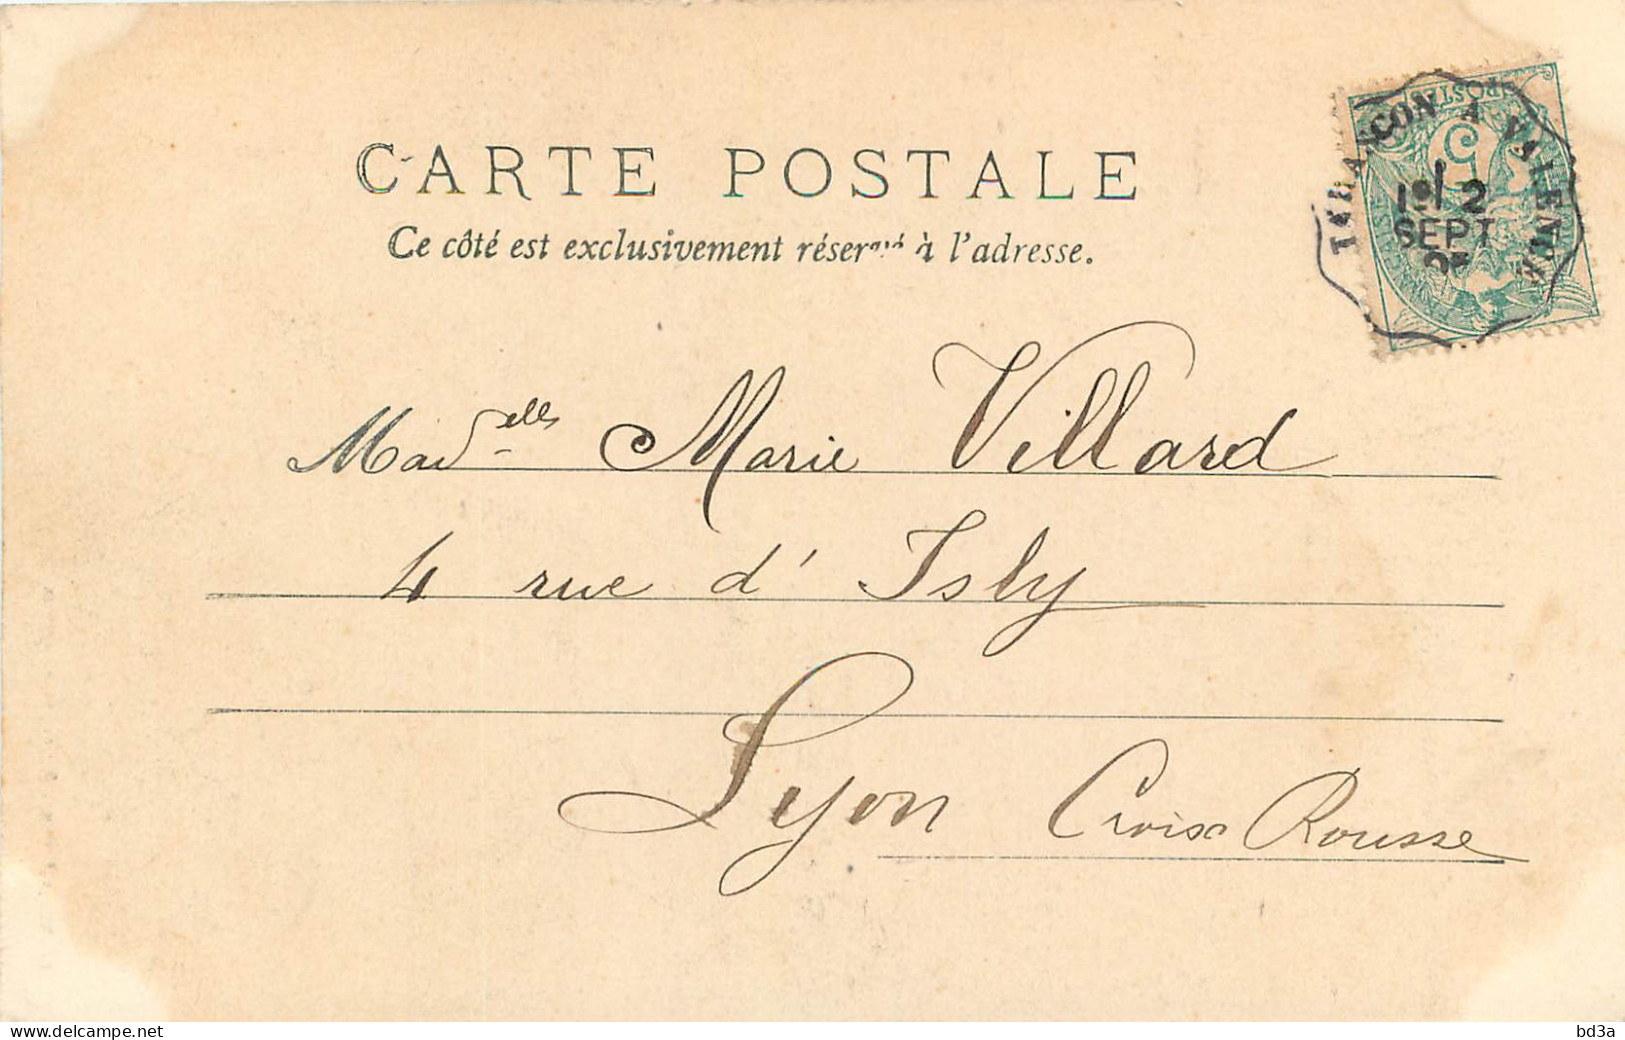 CARTE POSTALE
Ce côté est exclusivement réservé à l'adresse.
TARASCON A VALENCE
5
POSTES
SEPT
Mad.elle Marie Villard
4 rue d'Isly
Lyon Croix Rousse
www.delcampe.net
bd3a